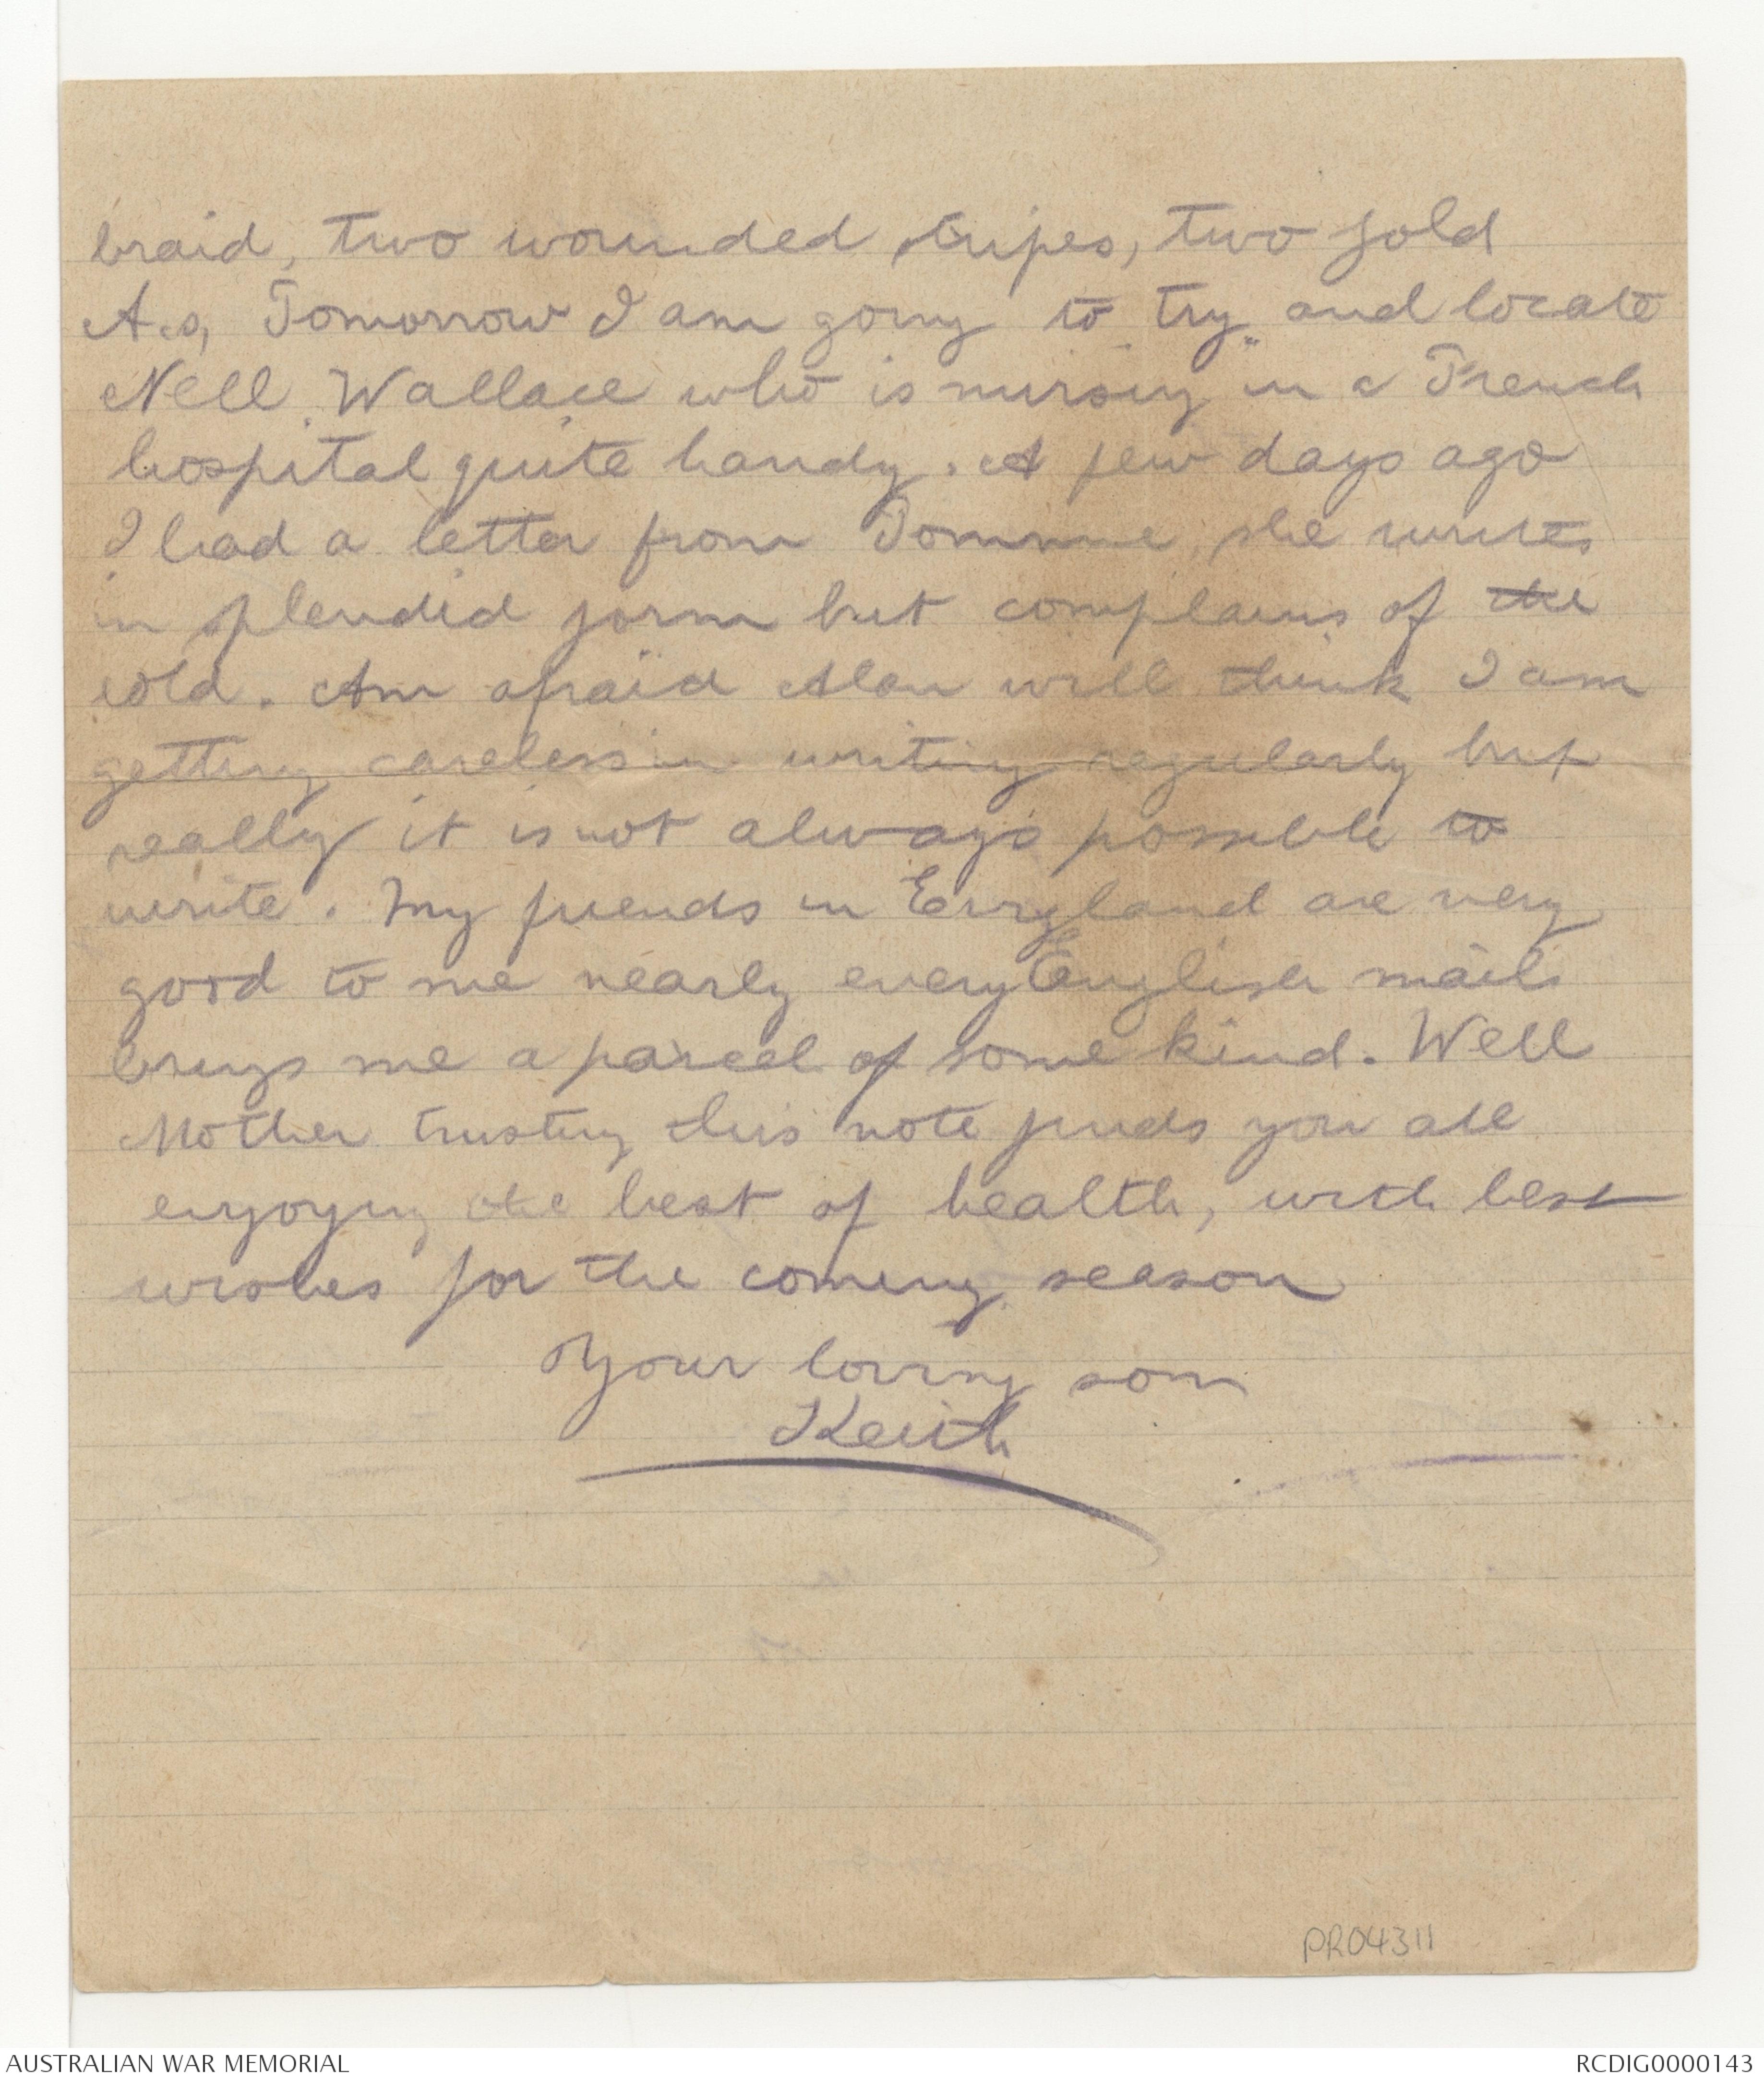 braid, two wounded stripes, two gold
A.s, Tomorrow I am going to try and locate
Nell Wallace who is nursing in a French
hospital quite handy. A few days ago
I had a letter from Tommie, she writes
in splendid form but complains of the
cold. Am afraid Alan will think I am
getting careless in writing regularly but
really it is not always possible to
write. My friends in England are very
good to me nearly every English mail
brings me a parcel of some kind. Well
Mother trusting this note finds you all
enjoying the best of health, with best
wishes for the coming season
Your loving son
Keith
PR04311
AUSTRALIAN WAR MEMORIAL
RCDIG0000143